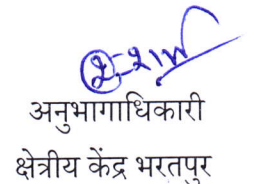 अनुभागाधिकारी
क्षेत्रीय केंद्र भरतपुर